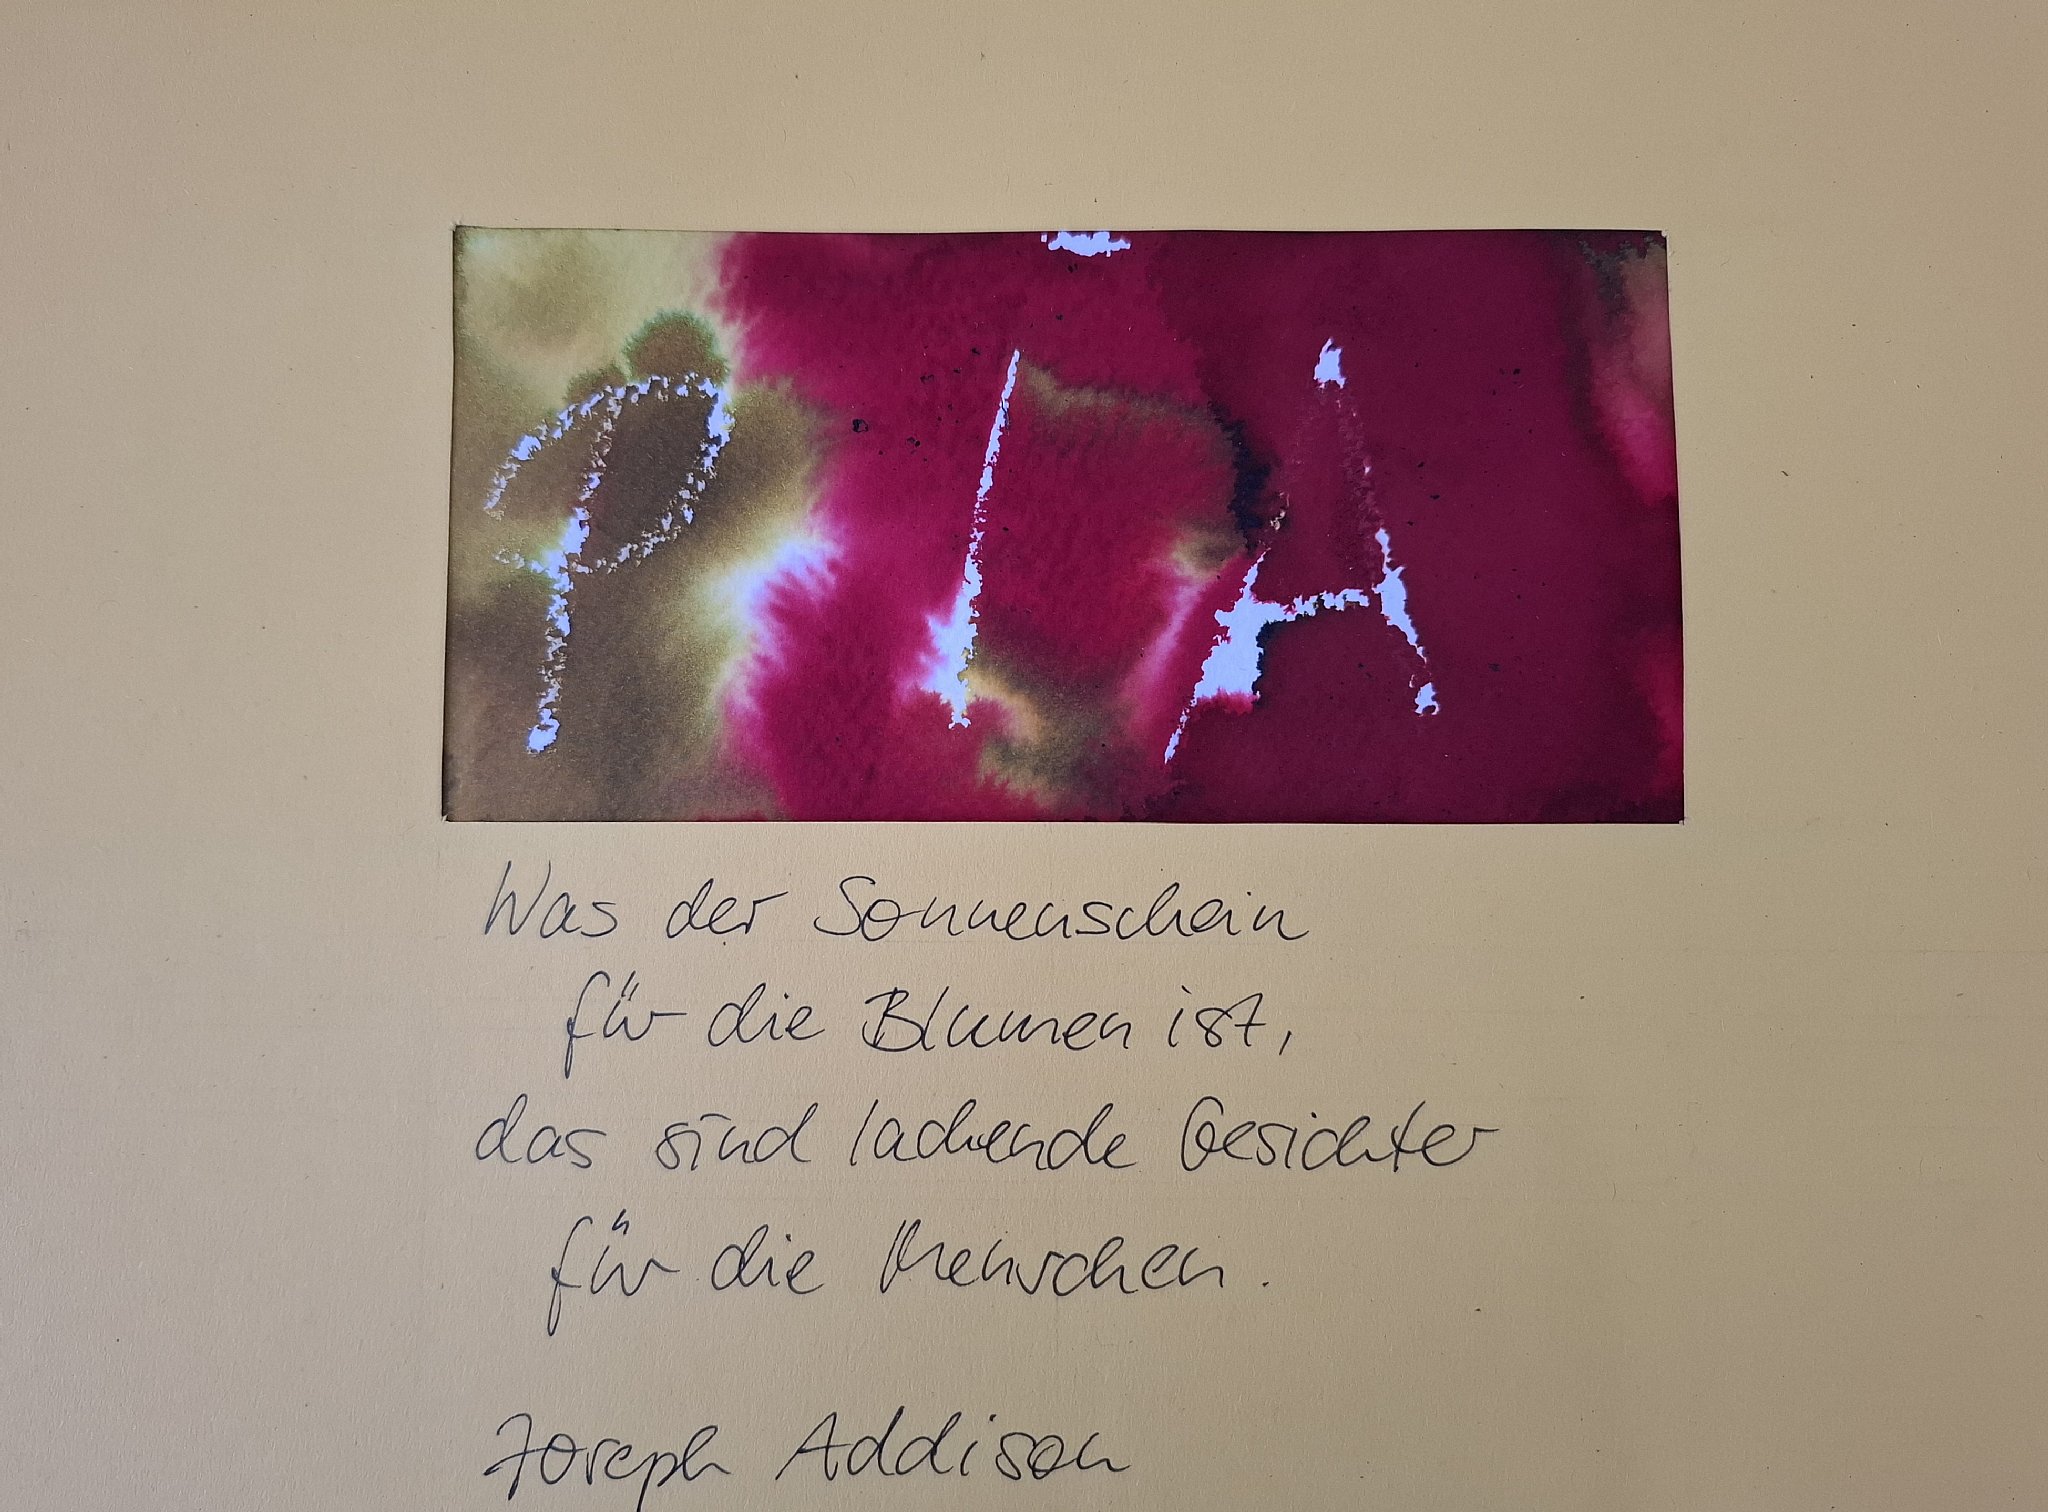 PIA
Was der Sonnenschein
für die Blumen ist,
das sind lachende Gesichter
für die Menschen.
Joseph Addison